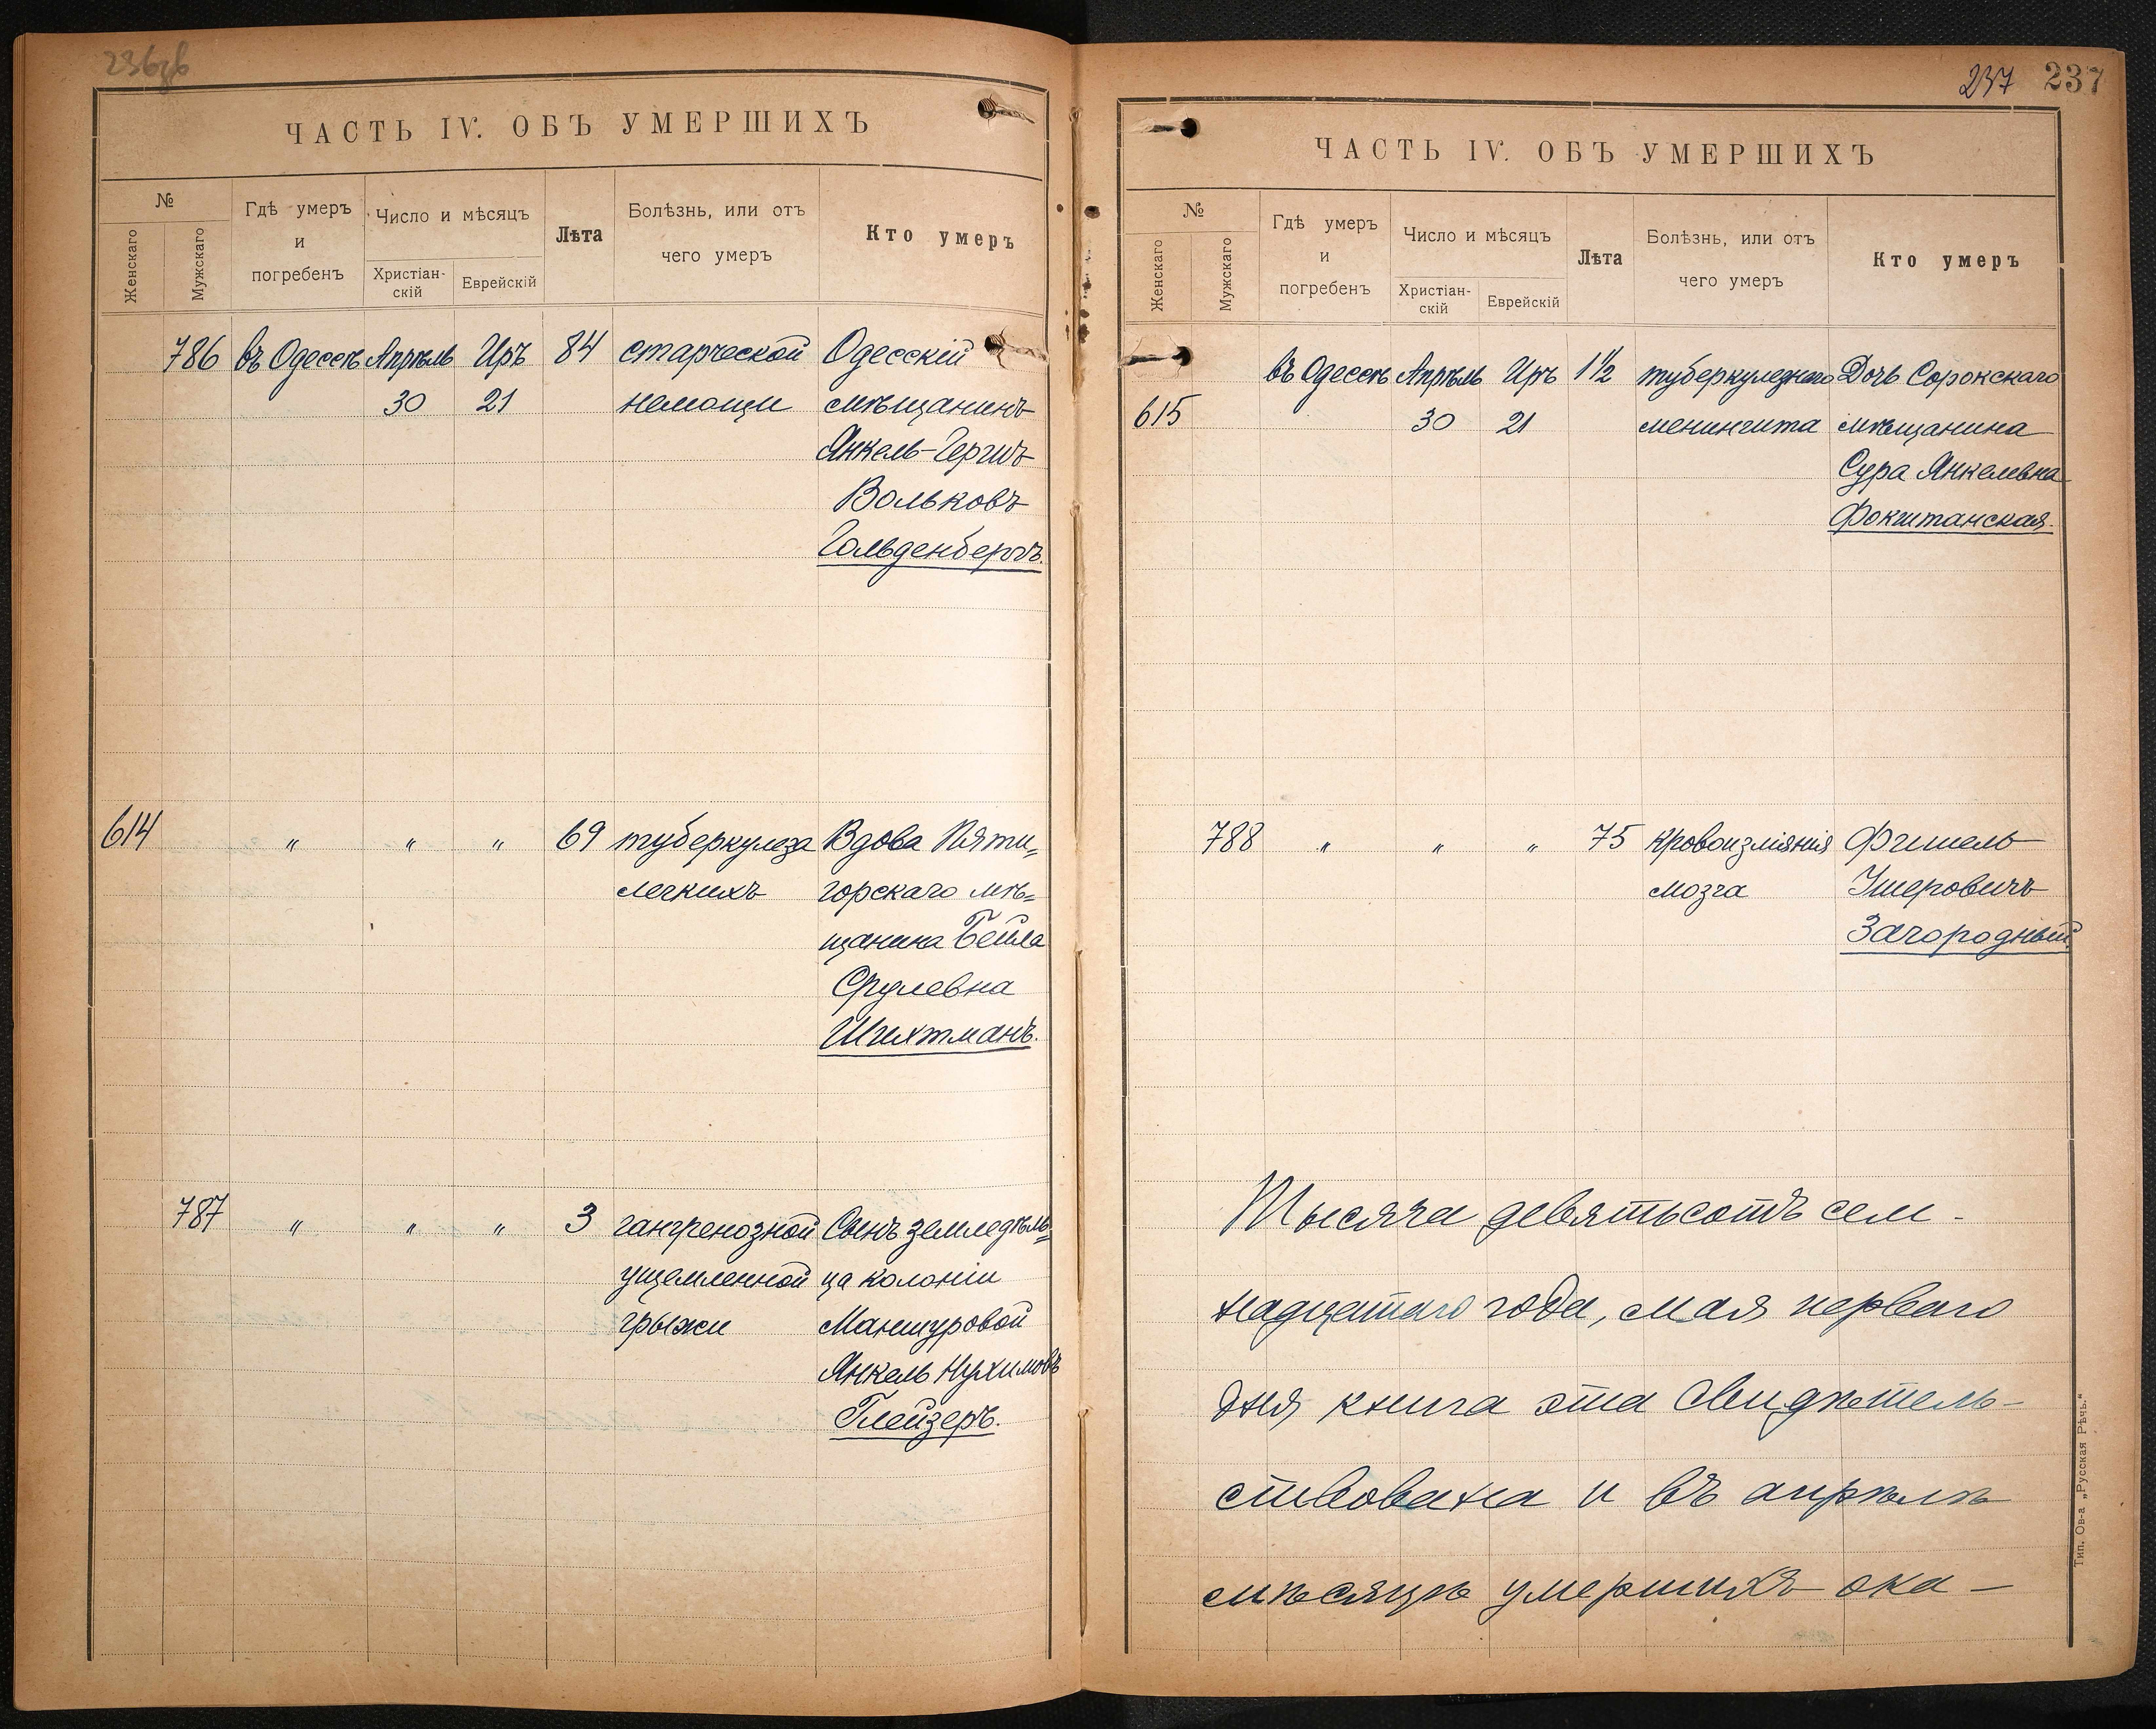 ЧАСТЬ IV. ОБЪ УМЕРШИХЪ
№
Женскаго
Мужскаго
Гдѣ умеръ
и
погребенъ
Число и мѣсяцъ
Христіан-
скій
Еврейскій
Лѣта
Болѣзнь, или отъ
чего умеръ
Кто умеръ
786 въ Одессѣ Апрѣль Иръ 84 старческой Одесскій
30 21 немощи мѣщанинъ
Янкель-Гершъ
Вольковъ
Гольденбергъ.
614 " " " 69 туберкулеза Вдова Пяти=
легкихъ горскаго мѣ=
щанина Бейла
Срулевна
Шихтманъ.
787 " " " 3 гангренозной Сынъ земледѣль=
ущемленной ца колоніи
грыжи Маншуровой
Янкель Нухимовъ
Глейзеръ.
237 237
ЧАСТЬ IV. ОБЪ УМЕРШИХЪ
№
Женскаго
Мужскаго
Гдѣ умеръ
и
погребенъ
Число и мѣсяцъ
Христіан-
скій
Еврейскій
Лѣта
Болѣзнь, или отъ
чего умеръ
Кто умеръ
въ Одессѣ Апрѣль Иръ 1½ туберкулезнаго Дочь Сорокскаго
615 30 21 менингита мѣщанина
Сура Янкелевна
Фокшанская.
788 " " " 75 кровоизліянія Фишель
мозга Ушеровичъ
Загородный
Тысяча девятьсотъ сем-
надцатаго года, мая перваго
дня книга эта свидѣтель-
ствована и въ апрѣлѣ
мѣсяцѣ умершихъ ока-
Тип. Ов-а „Русская Рѣчь."